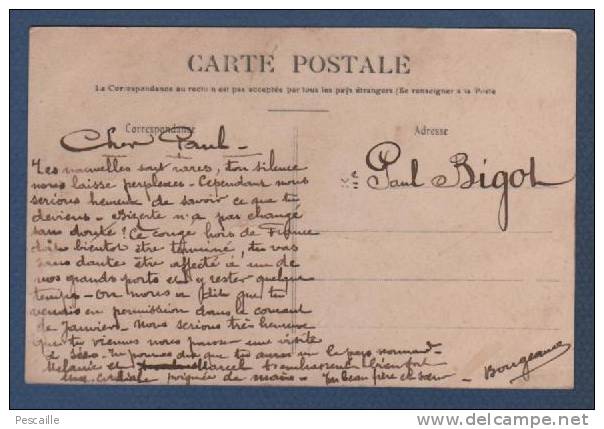 CARTE POSTALE
La Correspondance au recto n'est pas acceptée par tous les pays étrangers (Se renseigner à la Poste
Correspondance
Adresse
Cher Paul -
Tes nouvelles sont rares, ton silence
nous laisse perplexes - Cependant nous
serions heureux de savoir ce que tu
deviens - Bizerte n'a pas changé
sans doute ! Ce congé hors de France
doit bientôt être terminé, tu vas
sans doute être affecté à un de
nos grands ports et y rester quelque
temps - On nous a dit que tu
viendrais en permission dans le courant
de Janvier - Nous serions très heureux
que tu viennes nous passer une visite
à
Tu pourras dire que tu auras vu le pays normand -
Mélanie et Marcel t'embrassent bien fort
Une cordiale poignée de mains - Ton beau frère et sœur -
Bougeance
Paul Bigot
Pescaille
www.delcampe.net